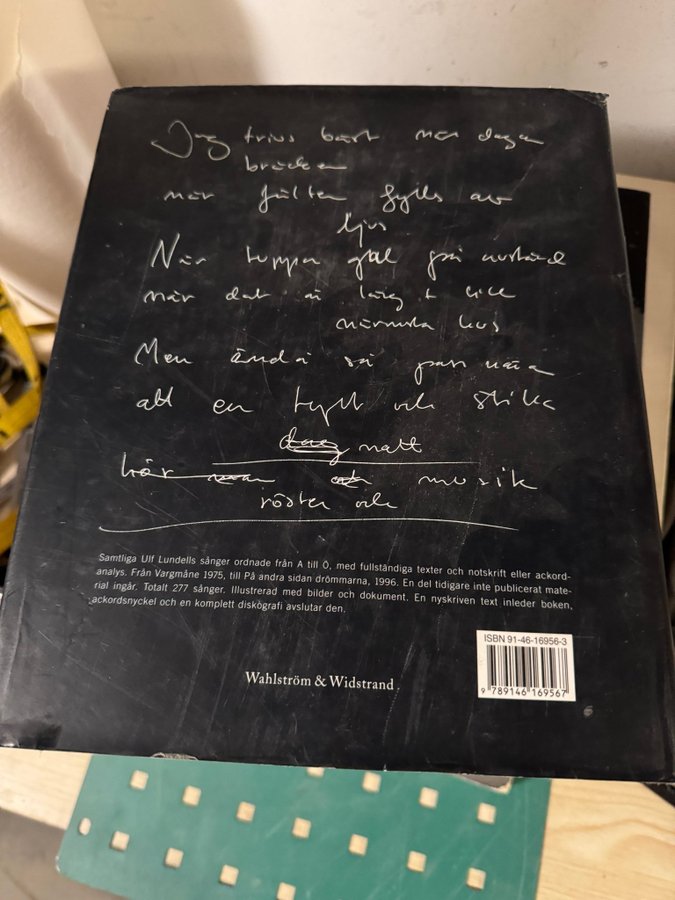 Jag trivs bäst när dagen
bräcker
när fälten fylls av
ljus
När tuppar gal på avstånd
när det är långt till
närmsta hus
Men ändå så pass nära
att en tyst och stilla
natt
hör musik
röster och
Samtliga Ulf Lundells sånger ordnade från A till Ö, med fullständiga texter och notskrift eller ackord-
analys. Från Vargmåne 1975, till På andra sidan drömmarna, 1996. En del tidigare inte publicerat mate-
rial ingår. Totalt 277 sånger. Illustrerad med bilder och dokument. En nyskriven text inleder boken,
ackordsnyckel och en komplett diskografi avslutar den.
ISBN 91-46-16956-3
9 789146 169567
Wahlström & Widstrand